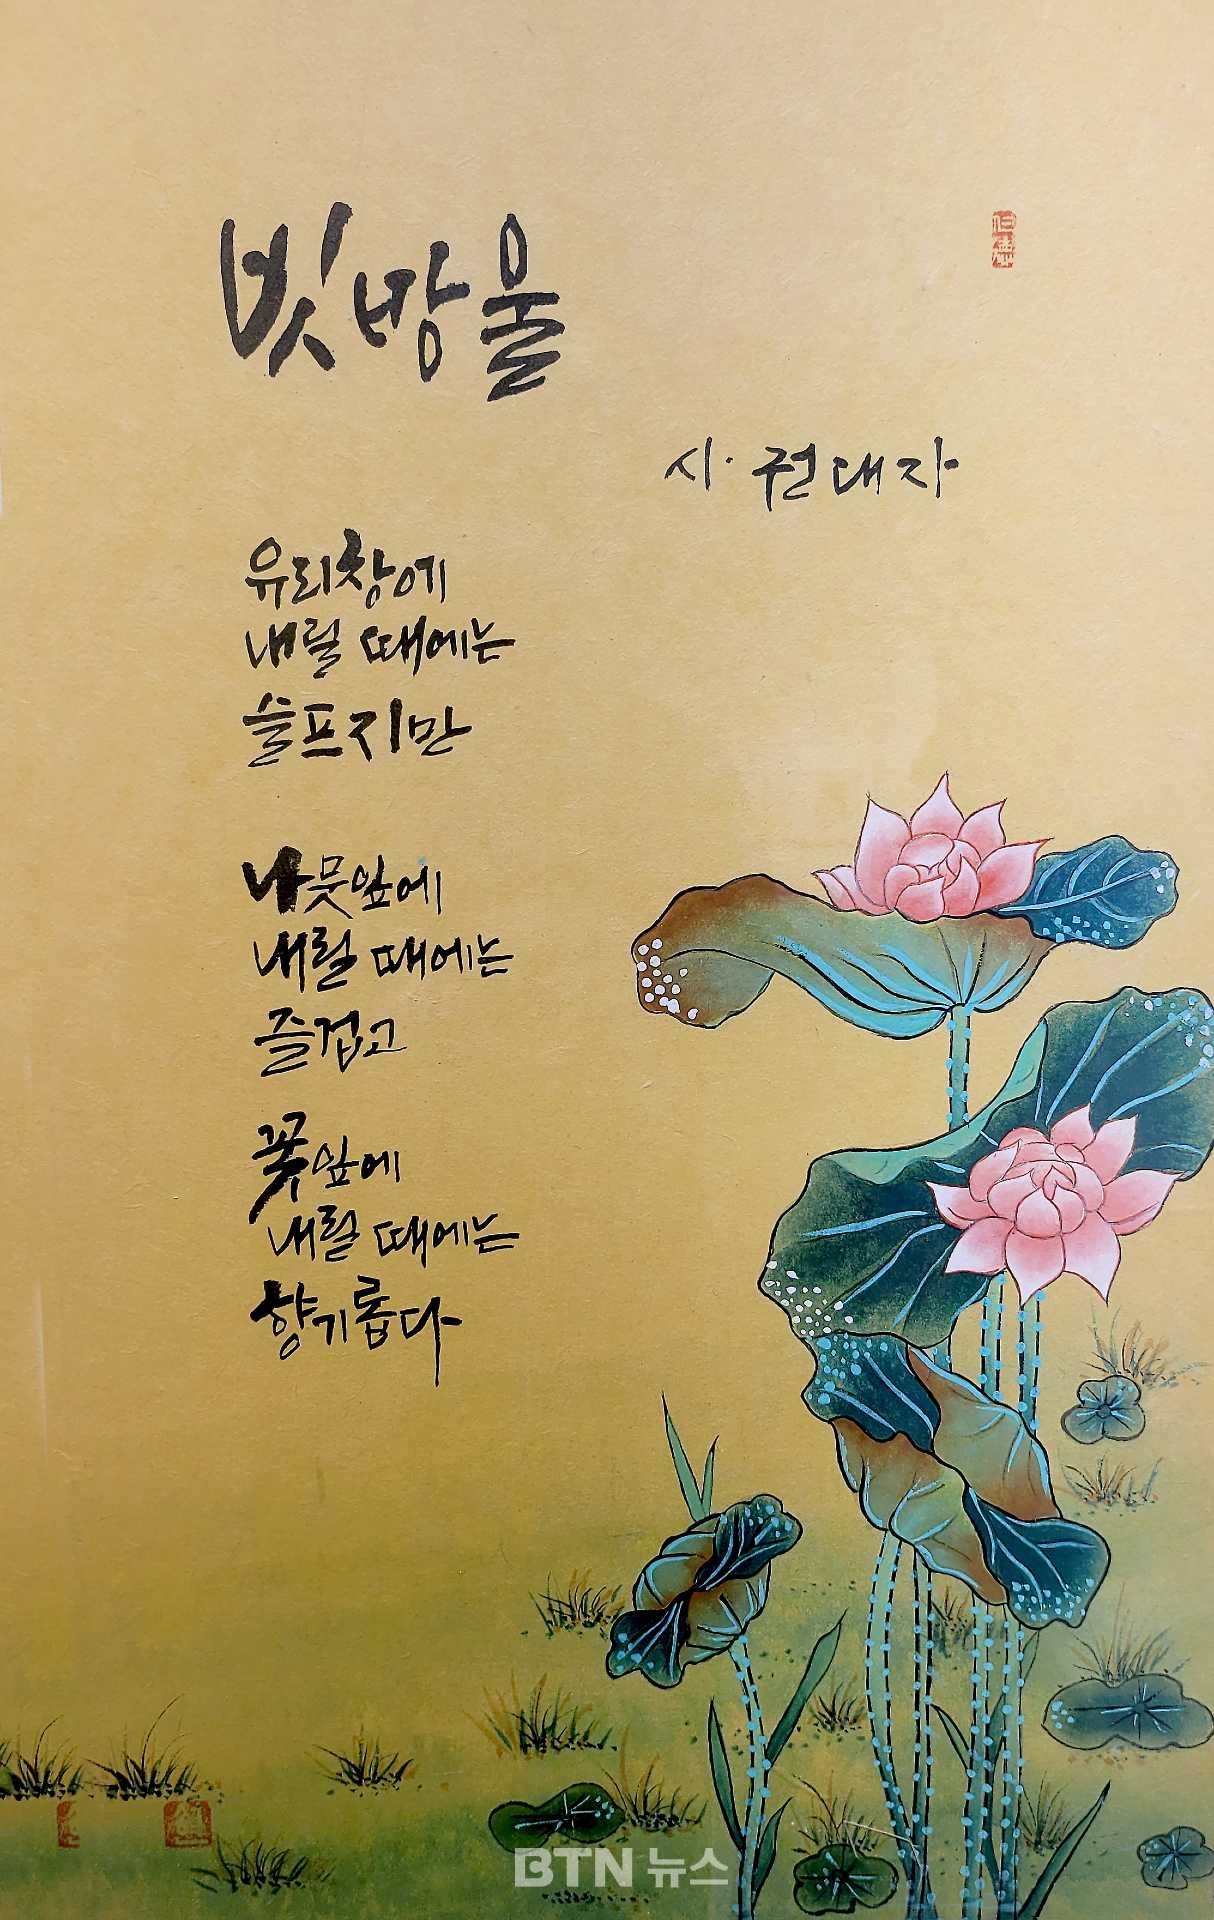 빗방울
시·권대자
유리창에
내릴 때에는
슬프지만
나뭇잎에
내릴 때에는
즐겁고
꽃잎에
내릴 때에는
향기롭다
BTN 뉴스